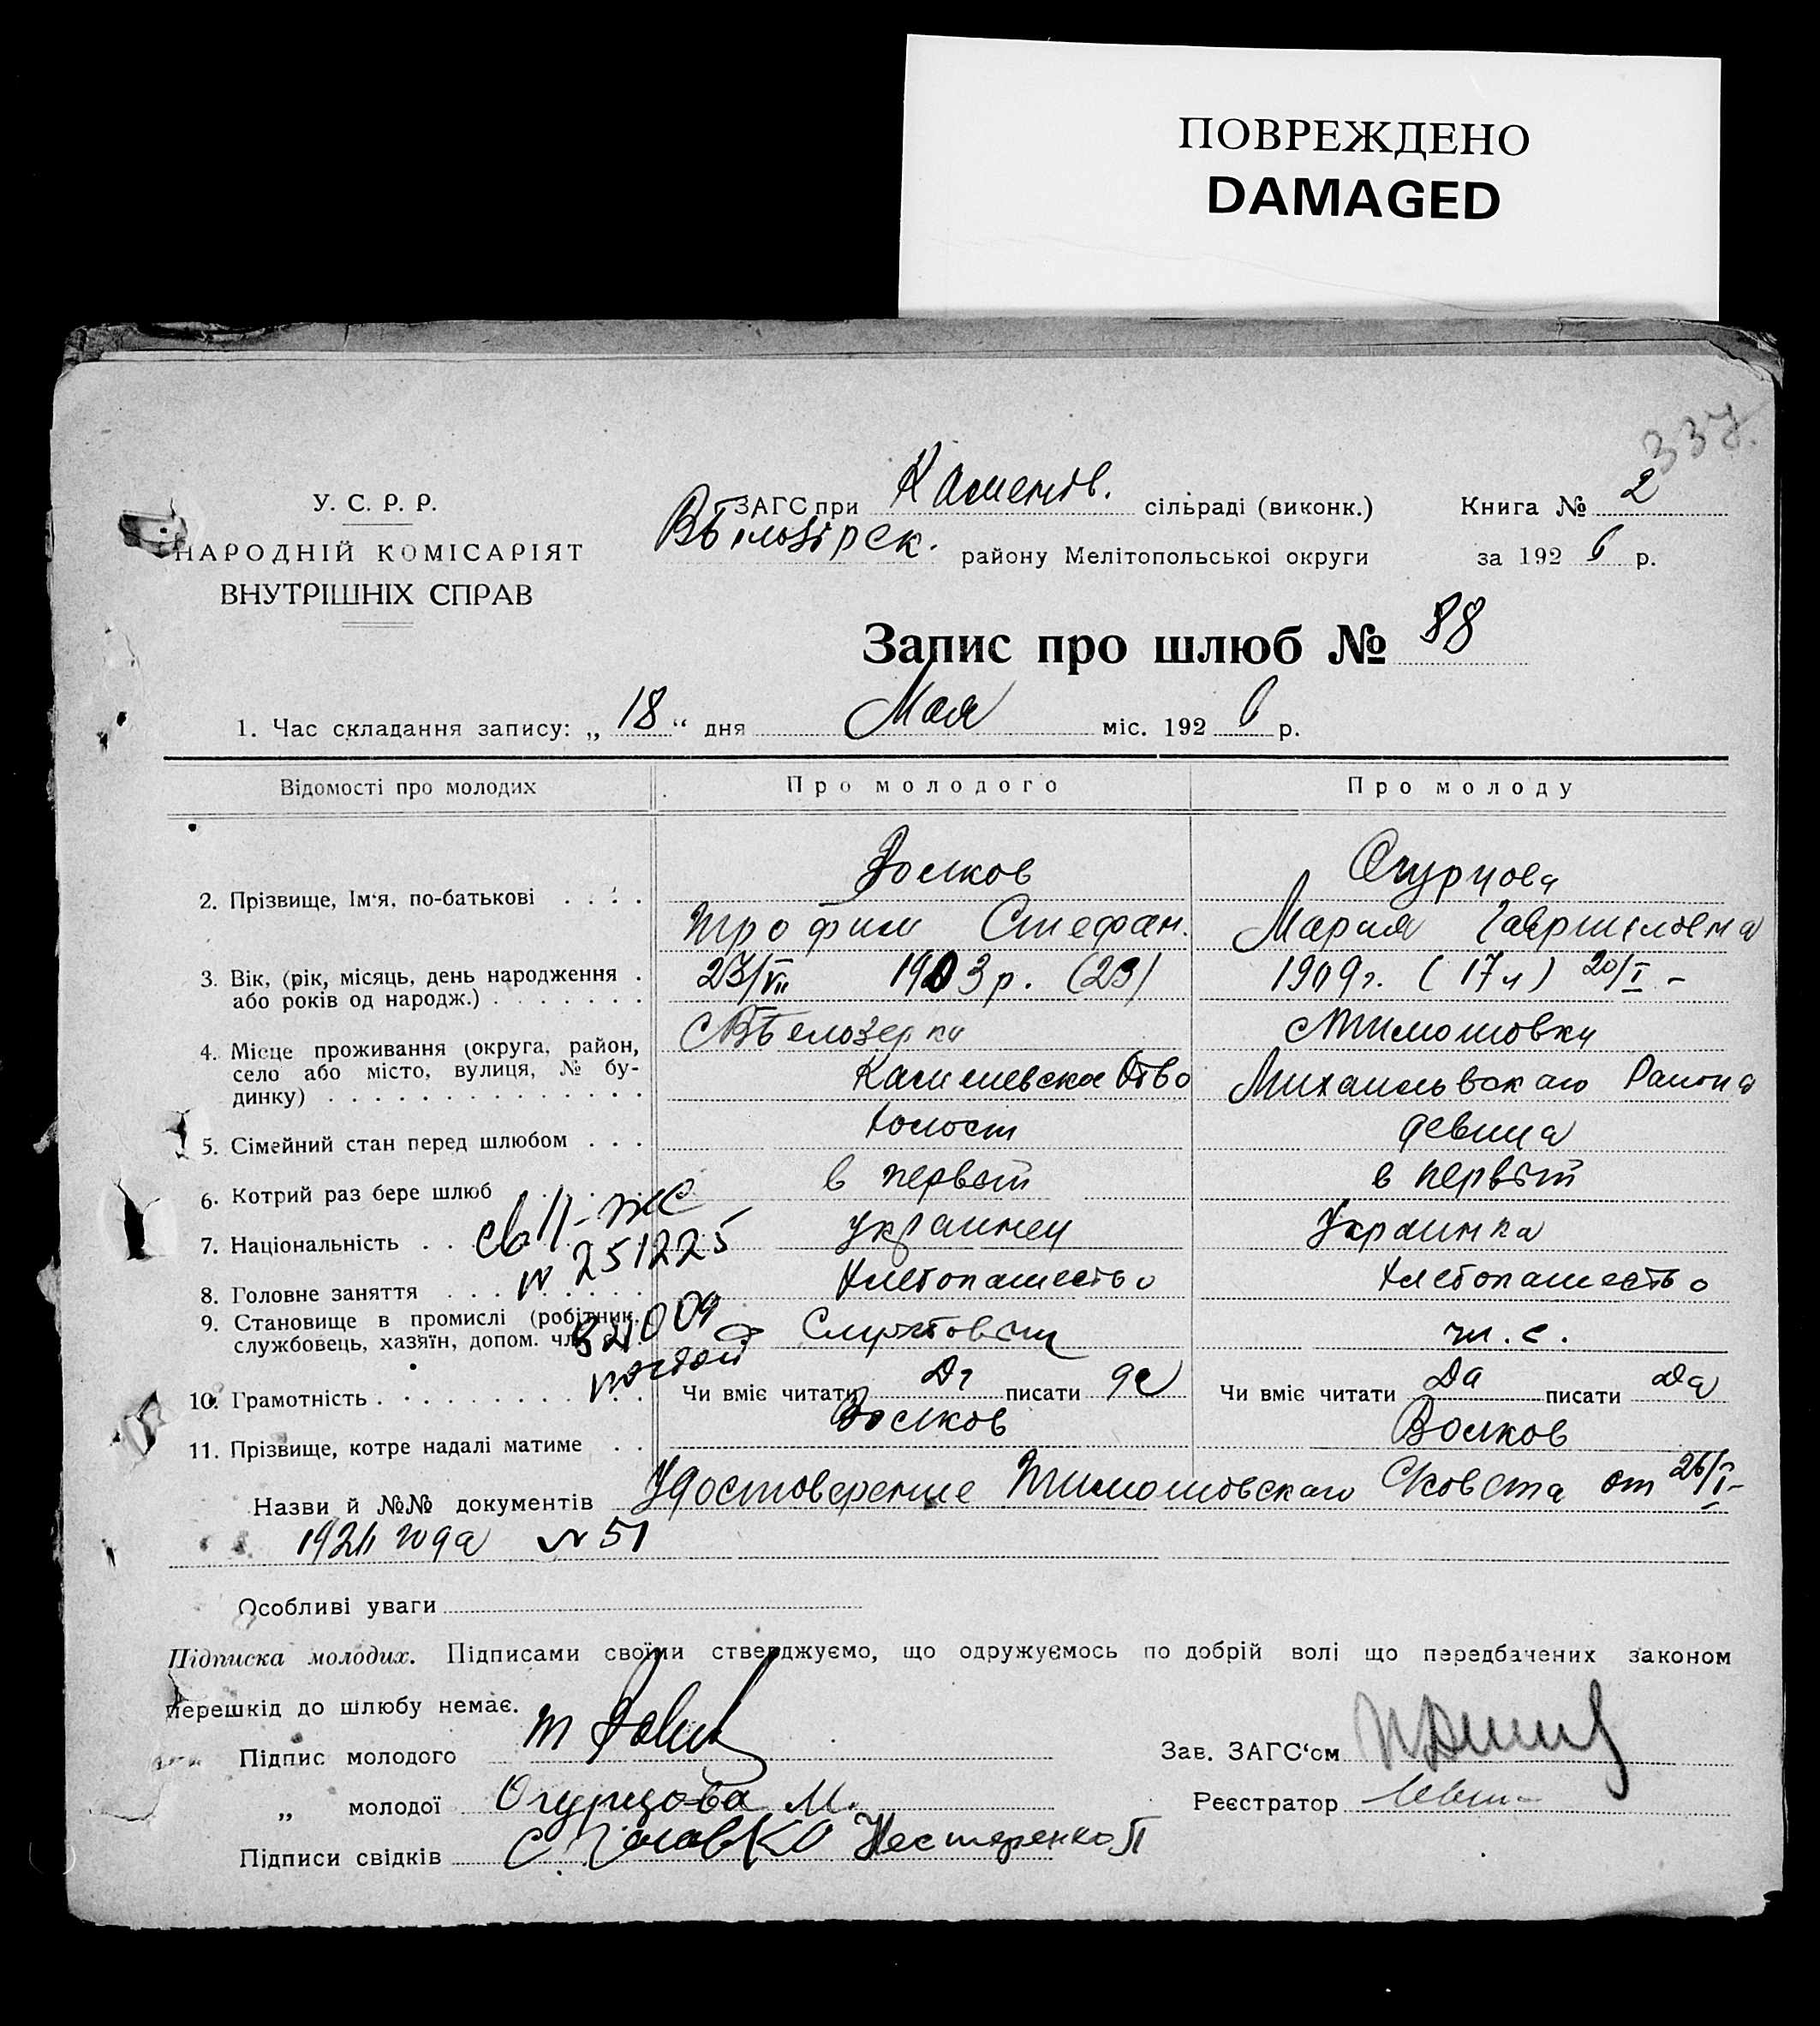 ПОВРЕЖДЕНО
DAMAGED
337.
У. С. Р. Р.
НАРОДНІЙ КОМІСАРІЯТ
ВНУТРІШНІХ СПРАВ
ЗАГС при Каменов. сільраді (виконк.) Книга № 2
району Мелітопольської округи за 1926 р.
Запис про шлюб № 88
1. Час складання запису: „ 18 “ дня Мая міс. 1926 р.
Відомості про молодих Про молодого Про молоду
Волков Огурцова
2. Прізвище, Ім‘я, по-батькові . . . .
Трофим Стефан. Мария Гавриловна
3. Вік, (рік, місяць, день народження . 23/VII 1903 р. (23) 1909 г. (17 л) 20/I –
або років од народж.) . . . . . . .
4. Місце проживання (округа, район, Белозерки с Тимошовки
село або місто, вулиця, № бу-
динку) . . . . . . . . . . . . . Михайловскаго Района
5. Сімейний стан перед шлюбом . . . холост девица
6. Котрий раз бере шлюб в первый в первый
7. Національність . . украинец Украинка
№ 251225
8. Головне заняття . . . Хлебопашество Хлебопашество
9. Становище в промислі (робітник,
службовець, хазяїн, допом. чл. ч. с.
10. Грамотність . . . . . . . . . . . Чи вміє читати Да писати да Чи вміє читати Да писати да
11. Прізвище, котре надалі матиме . . Волков Волков
Назви й №№ документів Удостоверение Тимошовскаго от 26/I–
1926 года № 51
Особливі уваги
Підписка молодих. Підписами своїми стверджуємо, що одружуємось по добрій волі що передбачених законом
перешкід до шлюбу немає.
Підпис молодого Зав. ЗАГС‘ом
„ молодої Огурцова М. Реєстратор
Підписи свідків С. Головко Нестеренко П